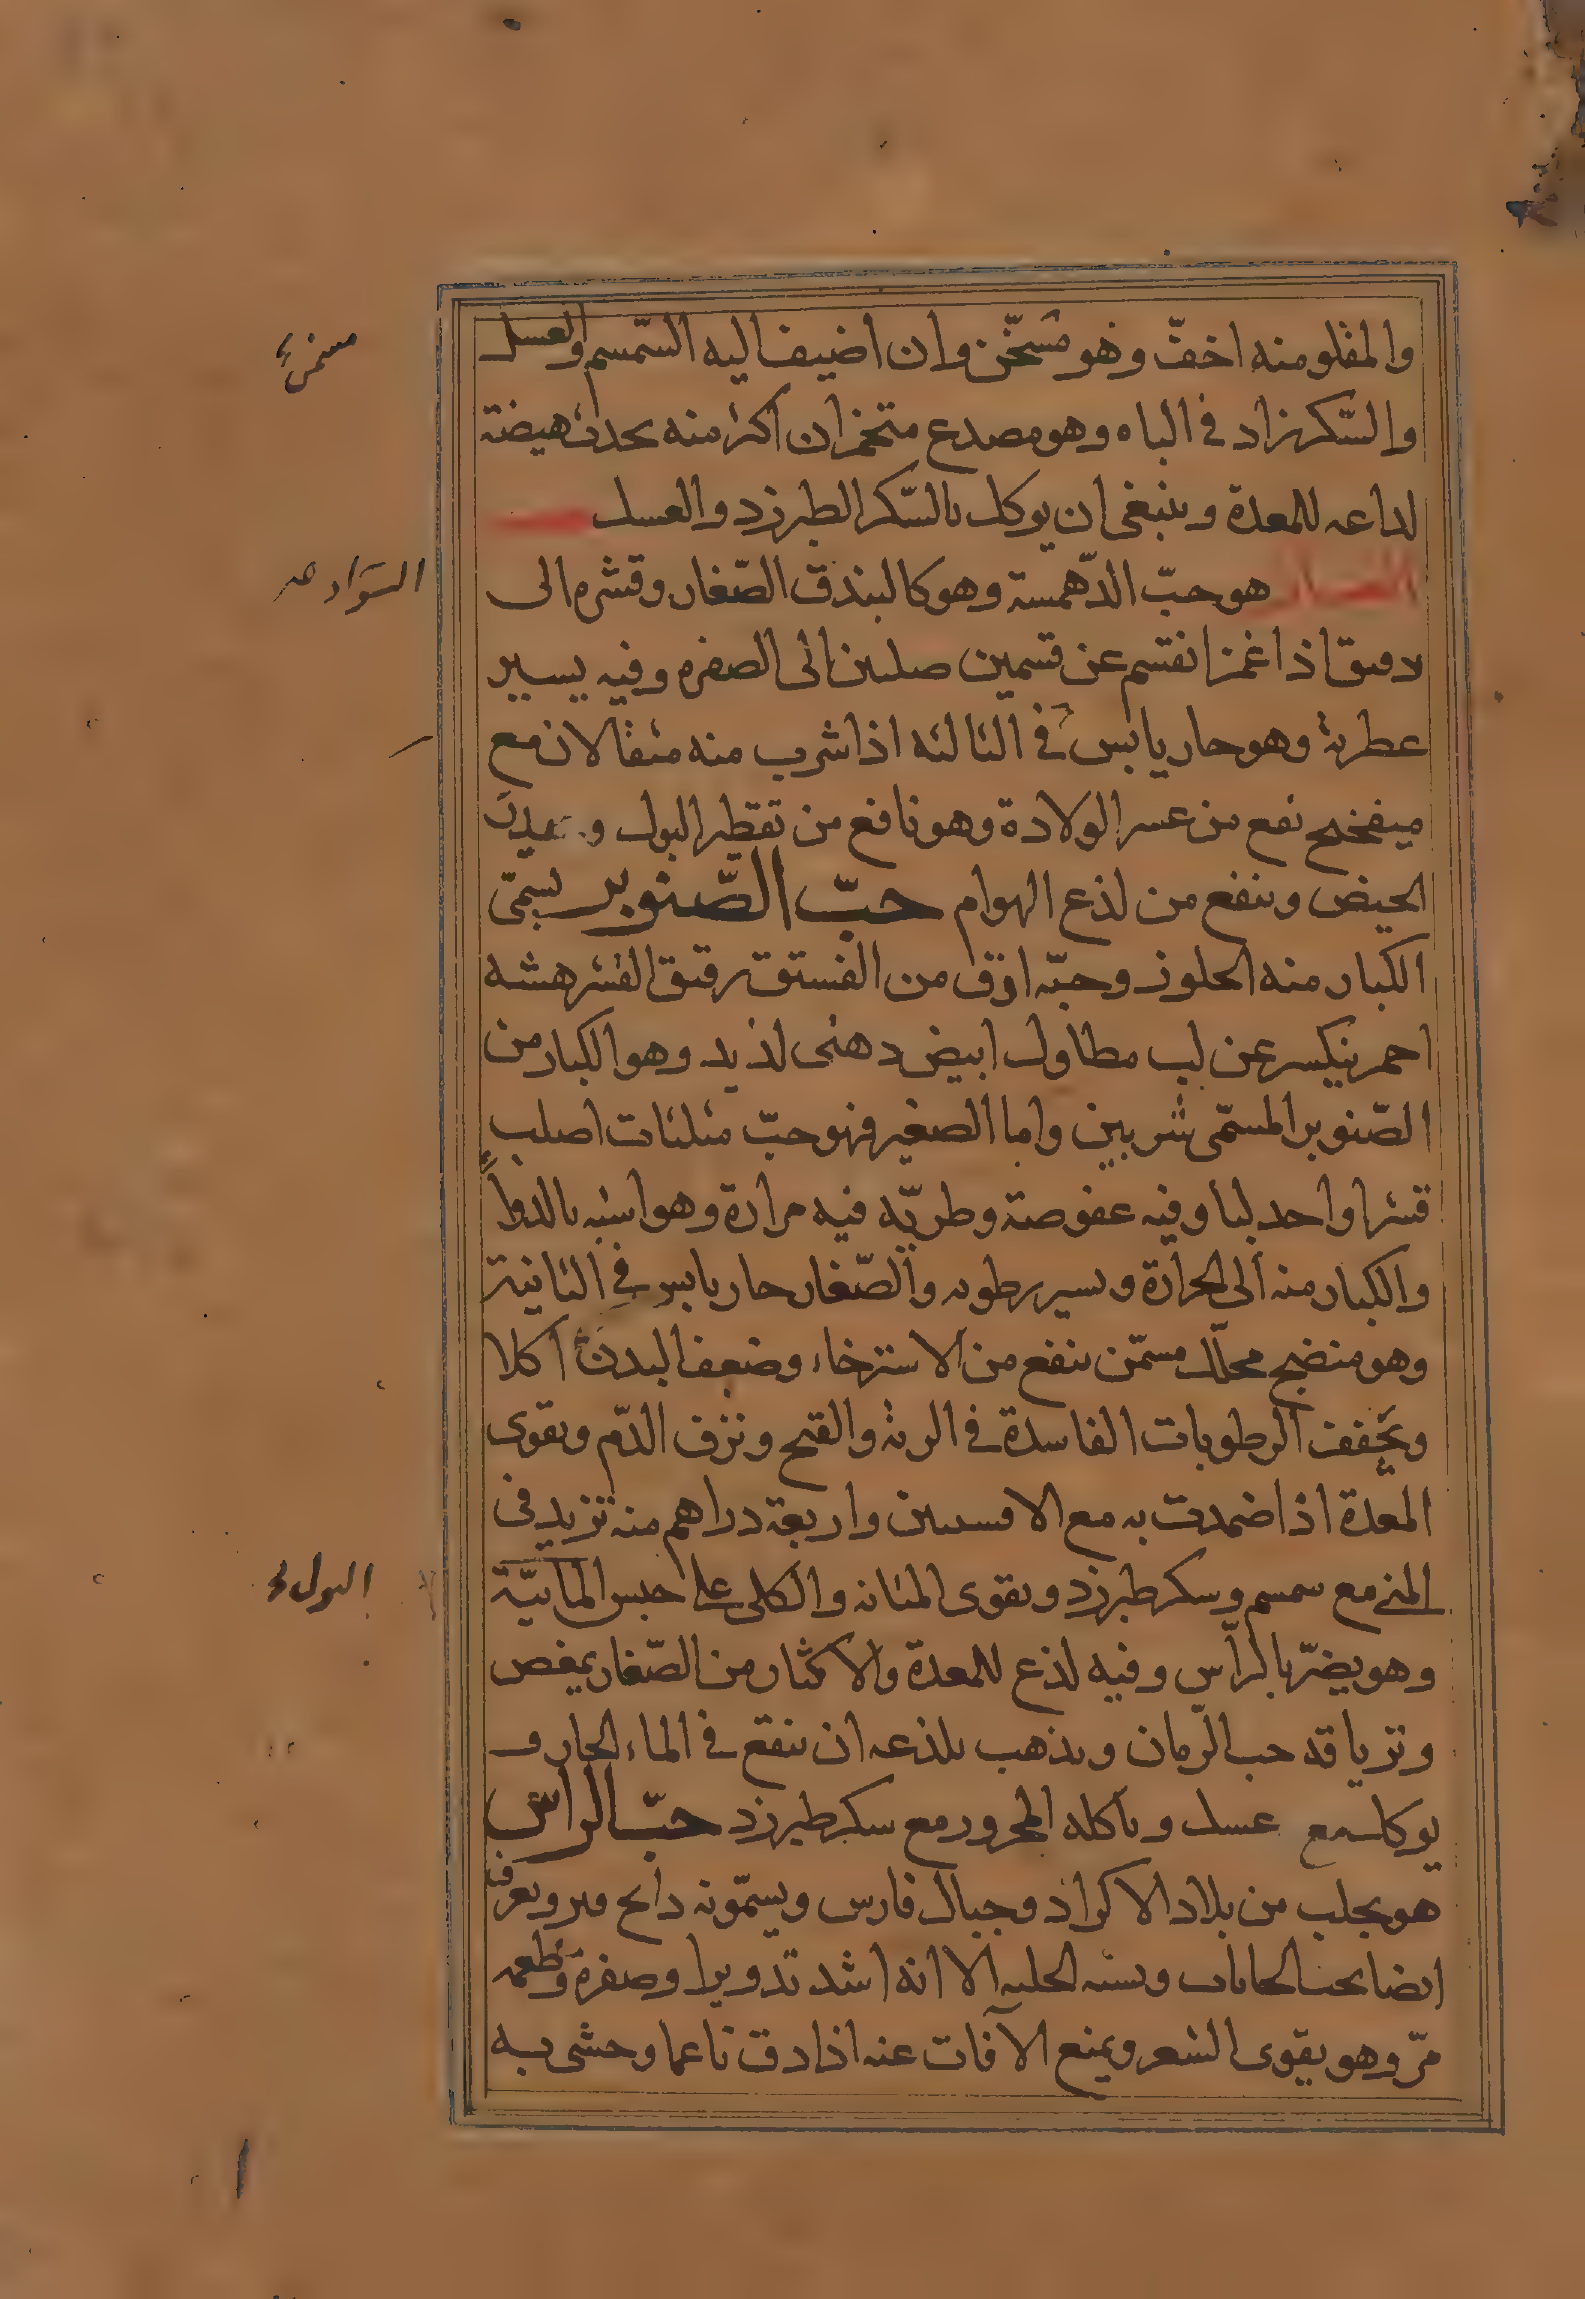 والمقلو منه اخفّ وهو مسخّن وان اضيف اليه السّمسم والعسل
مسمن
والسّكر زاد فى الباه وهو مصدع متخم ان اكثر منه يحدث هيضة
لداعه للمعدة وينبغى ان يوكل بالسّكر الطبرزد والعسل
هو حبّ الدّهمسة وهو كالبندق الصّغار وقشره الى
السّواد
دقيق اذا غمز انقسم عن قسمين صلبين الى الصفره وفيه يسير
عطرية وهو حار يابس فى الثالثه اذا شرب منه مثقالان مع
ميفختج نفع من عسر الولادة وهو نافع من تقطير البول و
الحيض وينفع من لذع الهوام حبّ الصّنوبر يسمّى
الكبار منه الجلوز وحبّه ارق من الفستق رقيق القشر هشه
احمر ينكسر عن لب مطاول ابيض دهنى لذيذ وهو الكبار من
الصّنوبر المسمّى شربين واما الصغير فهو حبّ مثلثات اصلب
قشرا واحد لبا وفيه عفوصة وطريّه فيه مرارة وهو اشبه بالدواءً
والكبار منه الى الحرارة ويسير رطوبه والصّغار حار يابس فى الثانية
وهو منضج محلّل مسمّن ينفع من الاسترخاء وضعف البدن اكلا
ويجفف الرطوبات الفاسدة فى الرئة والقيح ونزف الدّم ويقوى
المعدة اذا ضمدت به مع الافسنتين واربعة دراهم منه تزيد فى
المنى مع سمسم وسكر طبرزد ويقوى المثانه والكلى على حبس المائيّة
البول
وهو يضرّ بالرّاس وفيه لذع للمعدة والاكثار من الصّغار يمغص
وترياقه حب الرّمان ويذهب بلذعه ان ينقع فى الماء الحار و
يوكل مع عسل وياكله المحرور مع سكر طبرزد حبّ الراس
هو يجلب من بلاد الاكراد وجبال فارس ويسمّونه ويعرف
ايضا بحب ويشبه الحلبه الا انه اشد تدويرا وصفرة وطعمه
مرّ وهو يقوى الشعر ويمنع الآفات عنه اذا دق ناعما وحشى به